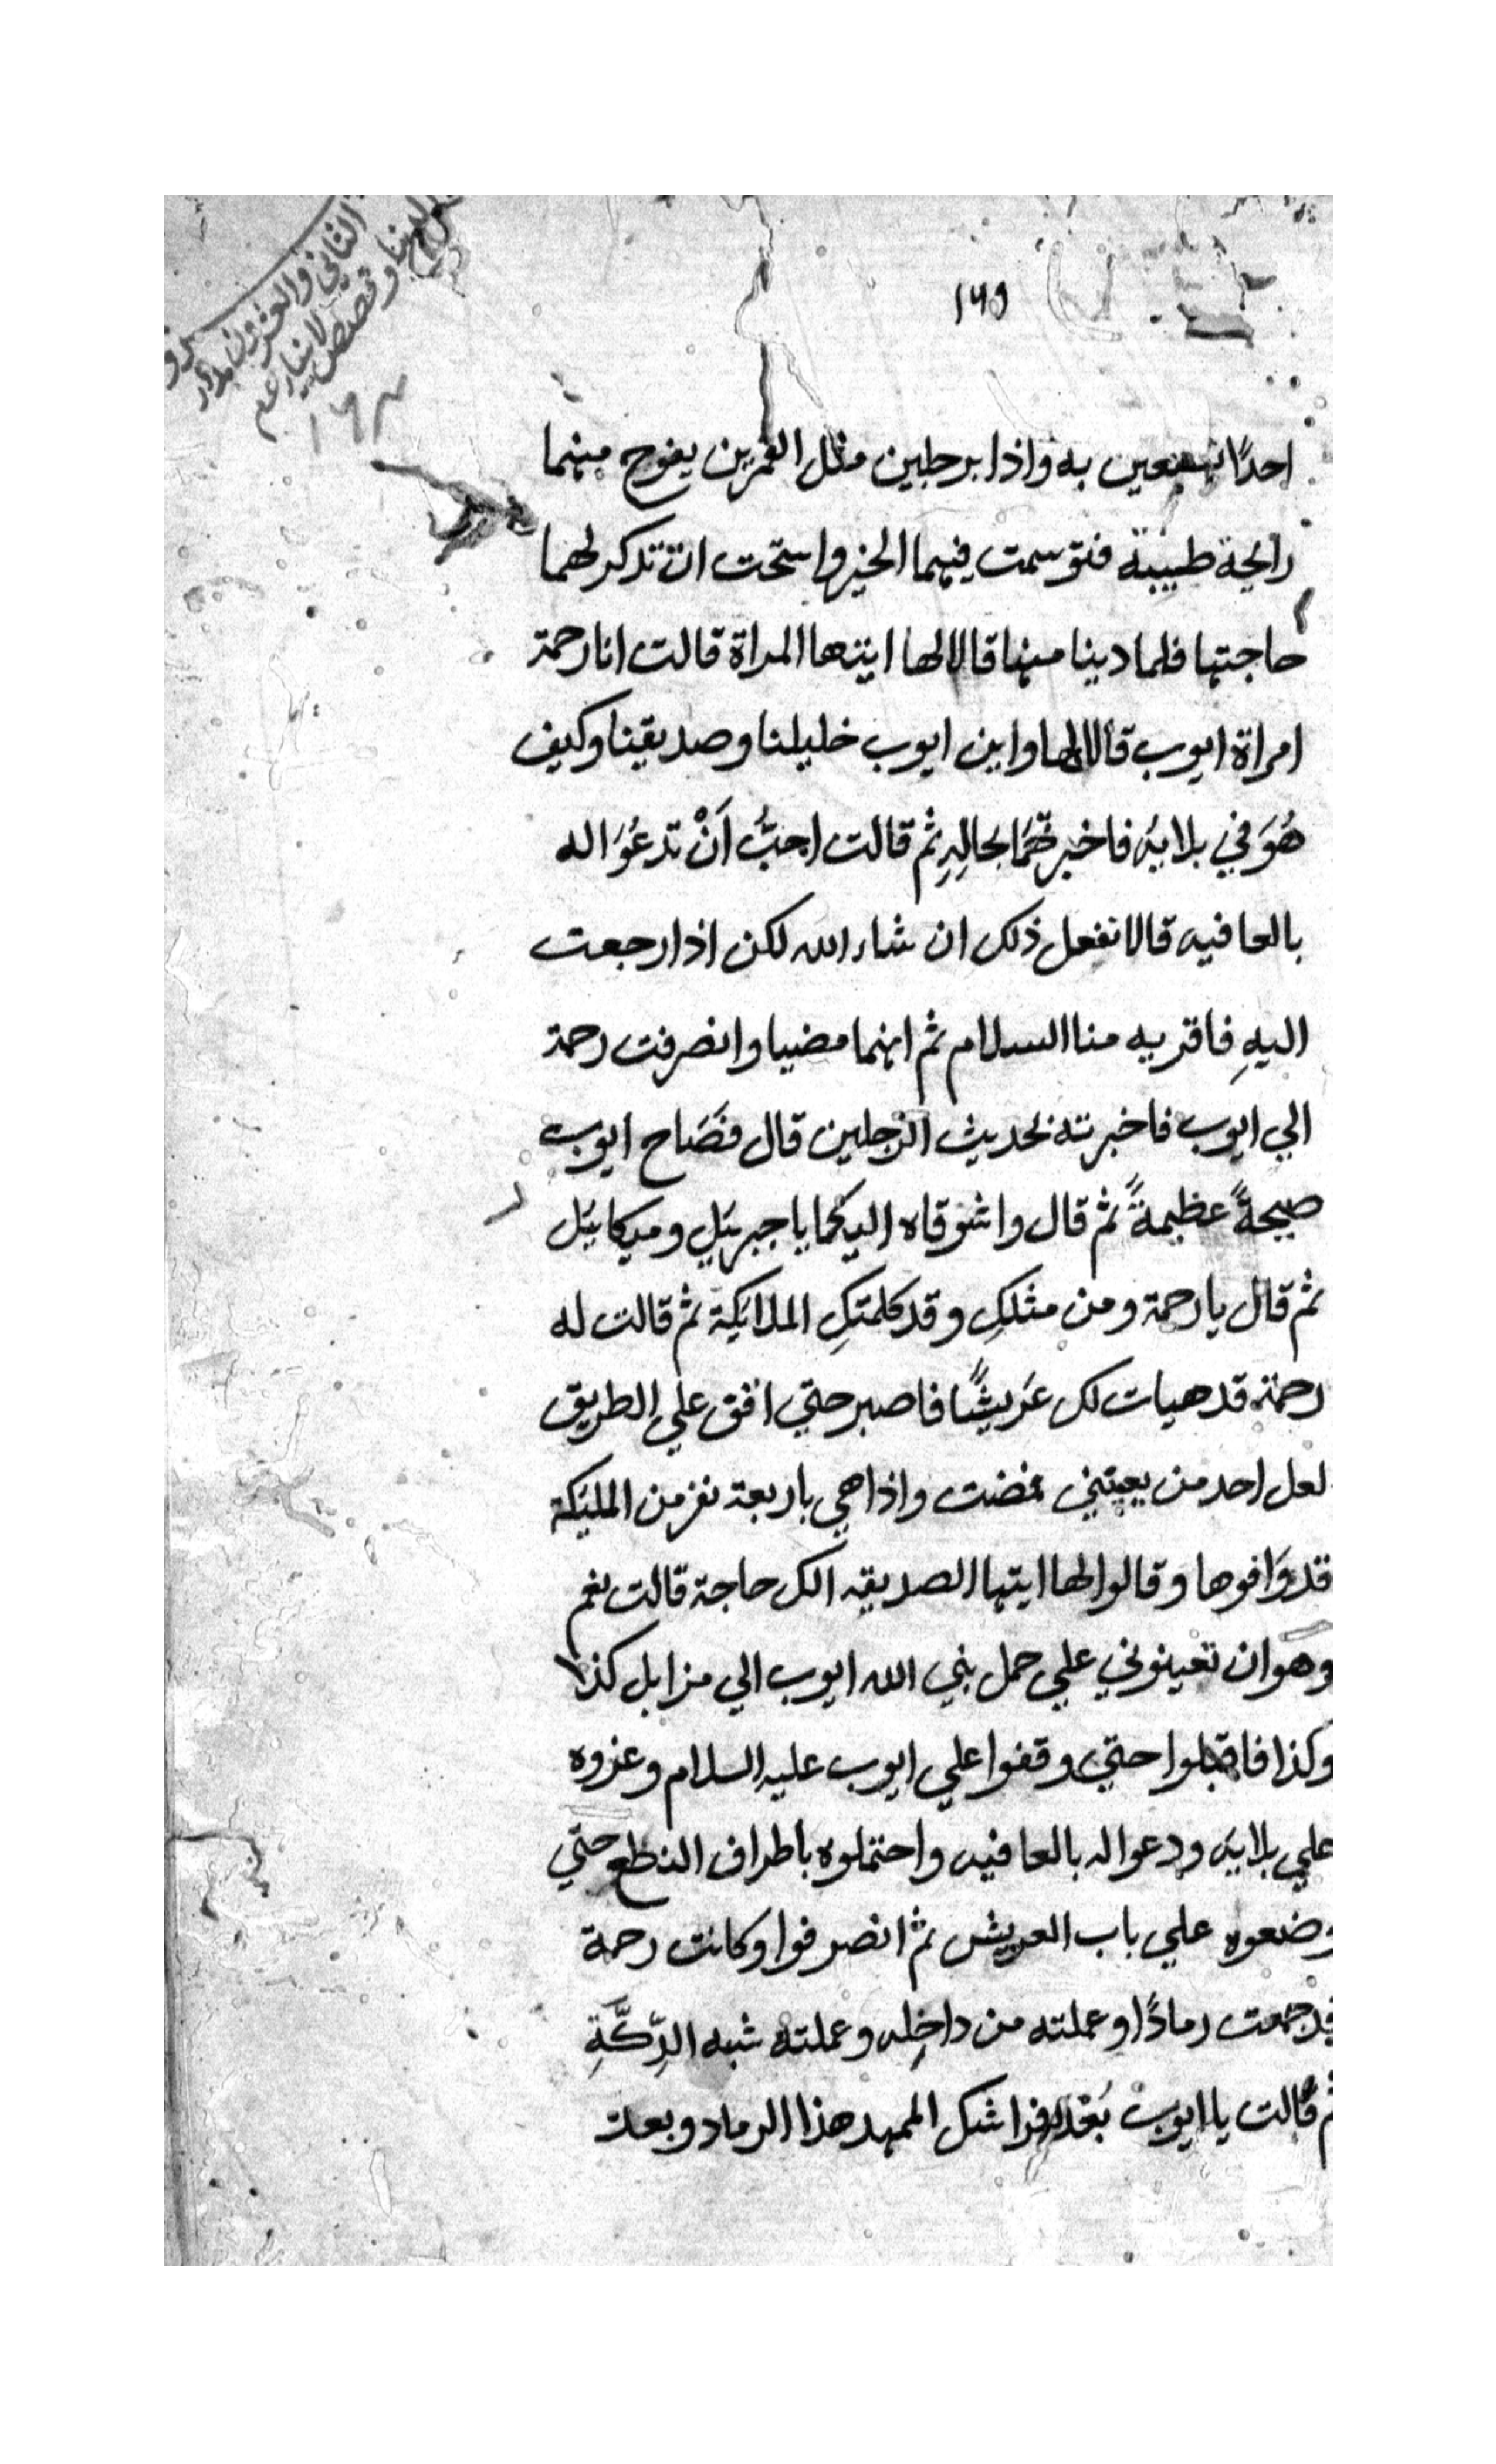 الثاني والعشرون من بدؤ
الدنيا وقصص الانبياء عم
١٦٣
١٦٩
احدًا تستعين به واذا برجلين مثل القمرين يفوح منهما
رايحة طيبة فتوسمت فيهما الخير واستحت ان تذكر لهما
حاجتها فلما دينا منها قالا لها ايتها المراة قالت انا رحمة
امراة ايوب قالا لها واين ايوب خليلنا وصديقنا وكيف
هُوَ في بلايهِ فاخبرتهُمَا بحالِهِ ثم قالت احبُّ اَنْ تدعُوَا له
بالعافيه قالا نفعل ذلك ان شاء الله لكن اذا رجعت
اليهِ فاقريه منا السلام ثم انهما مضيا وانصرفت رحمة
الي ايوب فاخبرته بحديث الرجلين قال فصَاح ايوب
صيحةً عظيمةً ثم قال واشوقاه اليكما يا جبريل وميكاييل
ثم قال يا رحمة ومن مثلكِ وقد كلمتكِ الملايكة ثم قالت له
رحمة قد هيات لك عَريشًا فاصبر حتي اقف علي الطريق
لعل احد من يعينني فمضت واذا هي باربعة نفر من المليكة
قد وَافوها وقالوا لها ايتها الصديقه الك حاجة قالت نعم
وهو ان تعينوني علي حمل نبي الله ايوب الي مزابل كذا
وكذا فاقبلوا حتي وقفوا علي ايوب عليه السلام وعزوه
علي بلايه ودعوا له بالعافيه واحتملوه باطراف النطع حتي
وضعوه علي باب العريش ثم انصرفوا وكانت رحمة
قد جمعت رمادًا وعملته من داخِله وعملته شبه الدِّكَّةِ
ثم قالت يا ايوب بَعْد فراشك الممهد هذا الرماد وبعد